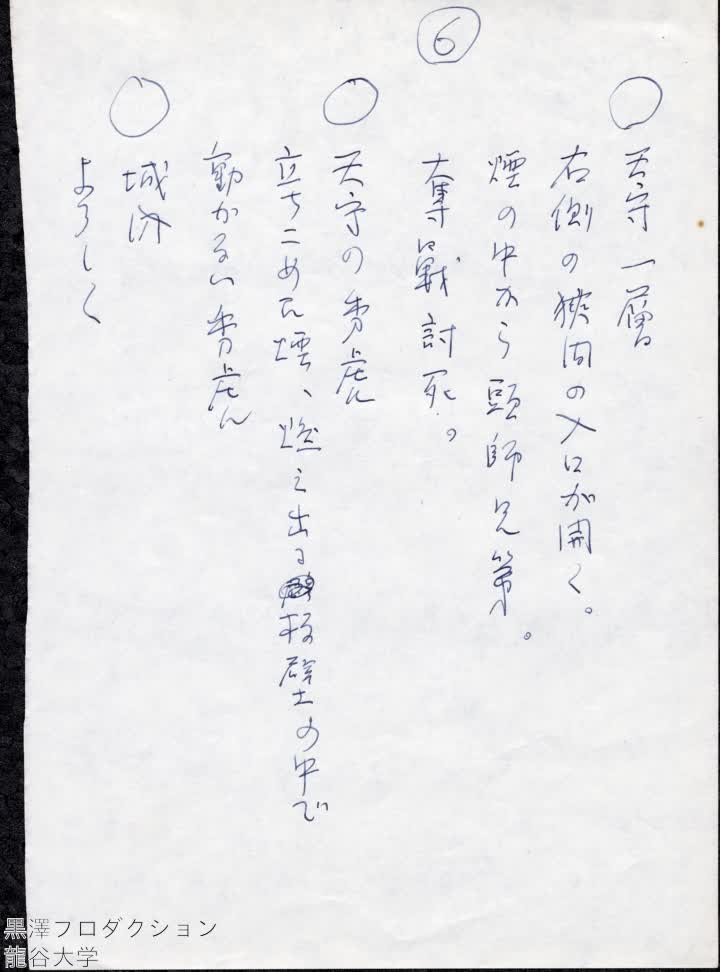 ⑥
○ 天守一層
右側の狭間の入口が開く。
煙の中から頭師兄弟。
奮戦討死。
○ 天守の秀虎
立ちこめる煙、燃え出る板壁の中で
動かない秀虎
○ 城内
よろしく
黒澤プロダクション
龍谷大学